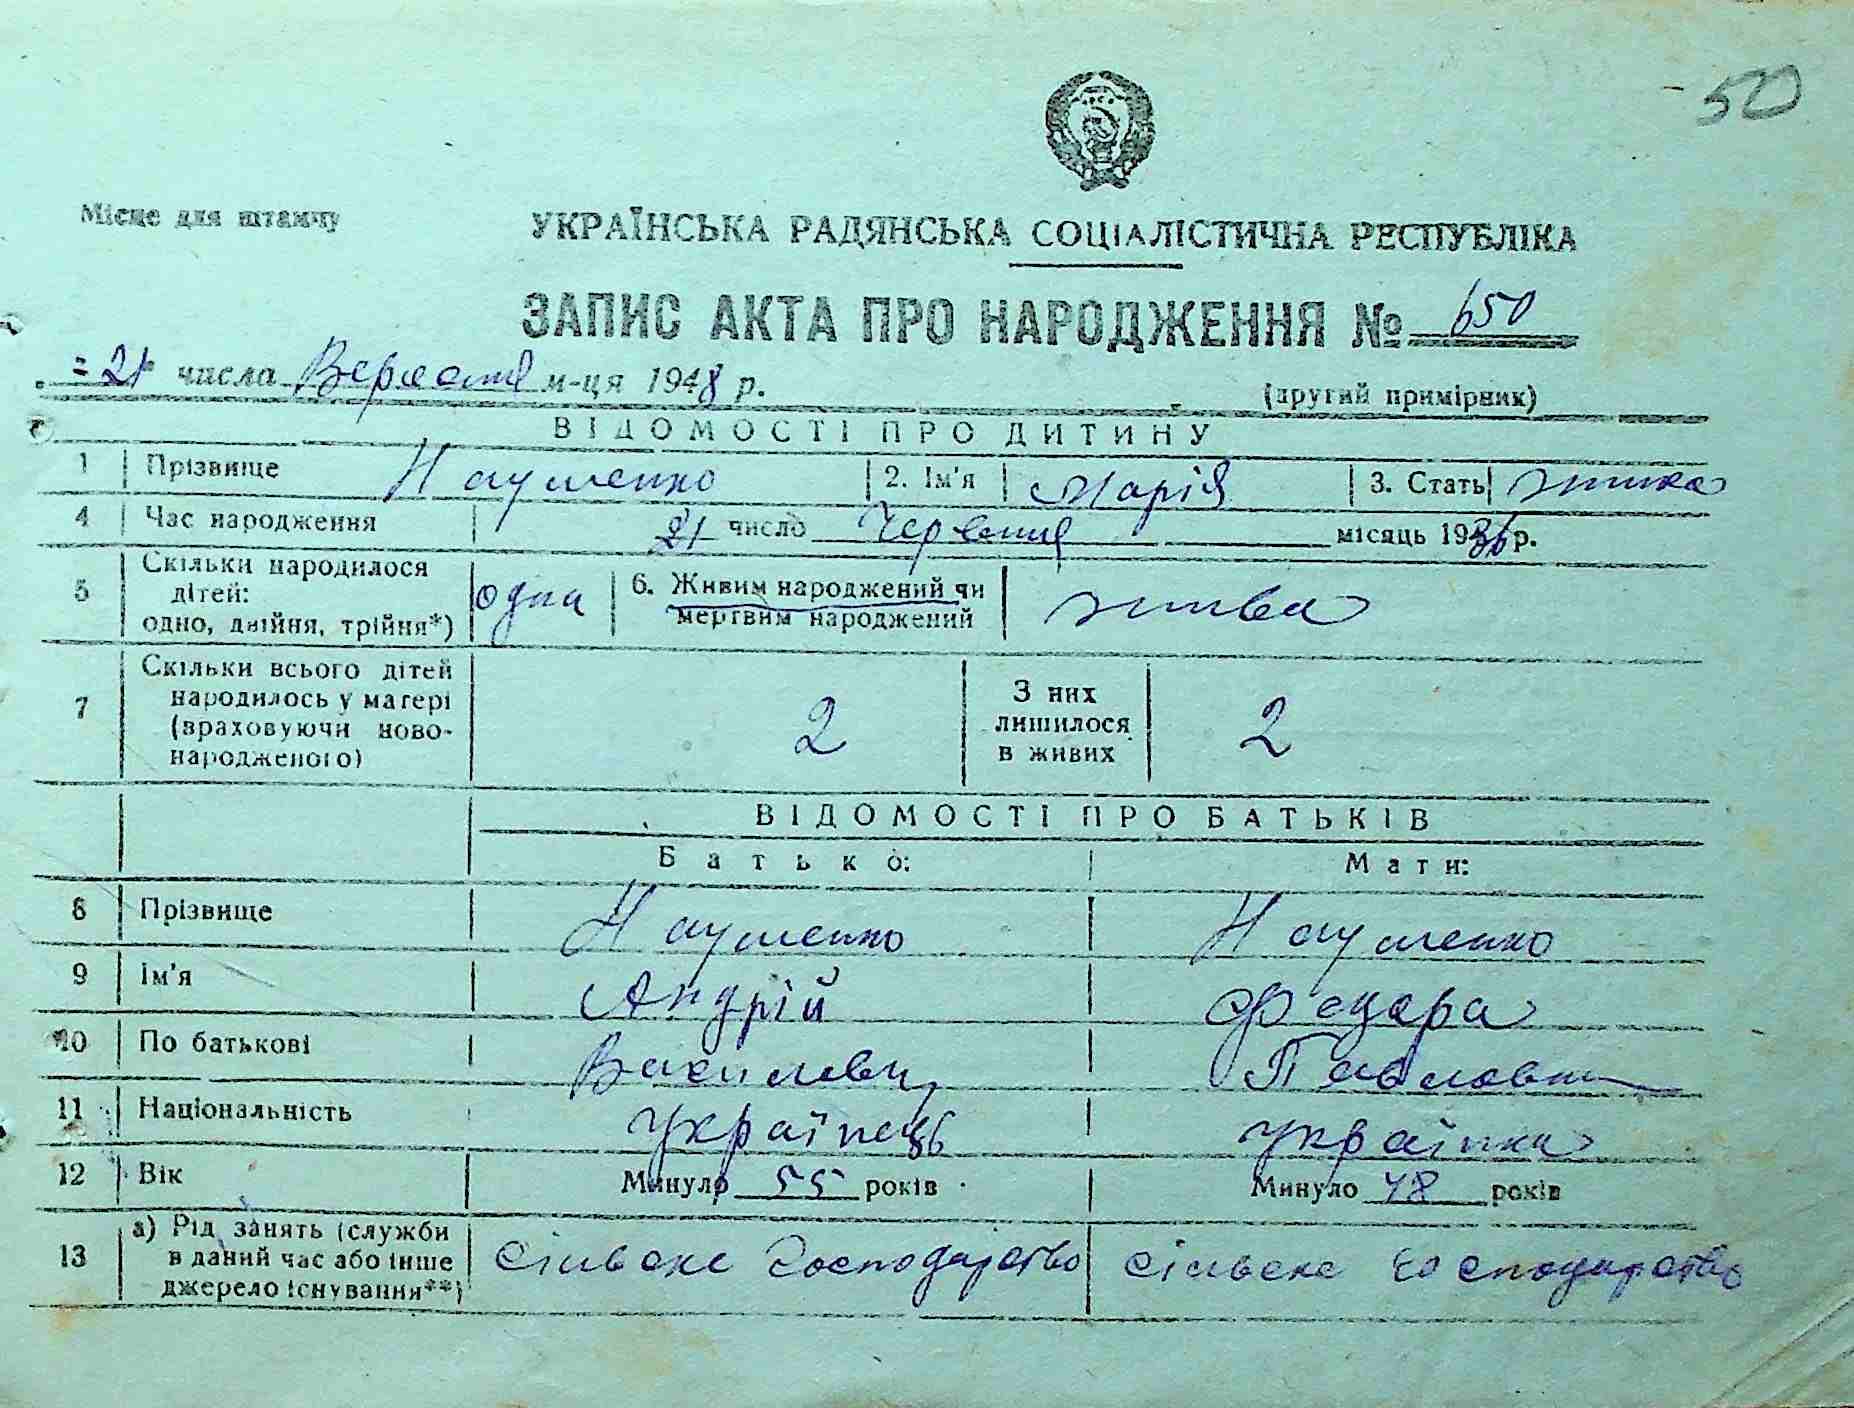 50
Місце для штампу
УКРАЇНСЬКА РАДЯНСЬКА СОЦІАЛІСТИЧНА РЕСПУБЛІКА
ЗАПИС АКТА ПРО НАРОДЖЕННЯ № 650
21 числа Вересня м-ця 1948 р. (другий примірник)
ВІДОМОСТІ ПРО ДИТИНУ
1 Прізвище Науменко 2. Ім'я Марія 3. Стать жінка
4 Час народження 21 число Червеня місяць 1936 р.
Скільки народилося
5 дітей: одна 6. Живим народжений чи жива
одно, двійня, трійня*) мертвим народжений
Скільки всього дітей
народилось у матері З них
7 (враховуючи ново- 2 лишилося 2
народженого) в живих
ВІДОМОСТІ ПРО БАТЬКІВ
Батько: Мати:
8 Прізвище Науменко Науменко
9 Ім'я Андрій Федора
10 По батькові Василевич Павловна
11 Національність українець українка
12 Вік Минуло 55 років Минуло 48 років
а) Рід занять (служби
13 в даний час або інше сільске господарство сільске господарство
джерело існування**)